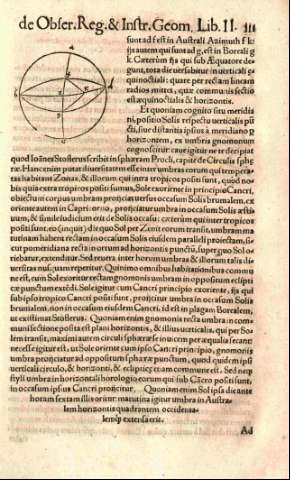 de Obser. Reg. & Instr. Geom. Lib. II. 111
sunt ad f est in Australi Azimuth f k:
ijs autem qui sunt ad g, est in Boreali g
k. Cæterùm ijs qui sub Æquatore de-
gunt, tota die versabitur in verticali æ-
quinoctiali: quare per rectam lineam
radios mittet, quæ communis sectio
est æquinoctialis & horizontis.
Et quoniam cognito situ meridia
ni, positio Solis respectu verticalis pū
cti, siue distantis ipsius à meridiano p
horizontem, ex umbris gnomonum
cognoscitur: caue igitur ne te decipiat
quod Ioãnes Stoflerus scribit in sphæram Procli, capite de Circulis sphæ
ræ. Hanc enim putat diuersitatem esse inter umbras eorum qui tempera-
tas habitant Zonas, & illorum qui intra tropicos positi sunt, quod no-
bis quia extra tropicos positi sumus, Sole exoriente in principio Cancri,
obiectum corpus umbram projiciat versus occasum Solis brumalem, ex
oriente autem in Capricorno, projiciatur umbra in occasum Solis æsti-
uum, & simile iudicium erit de Solis occasu: cæterùm qui inter tropicos
positi sunt, eo (inquit) die quo Sol per Zenit eorum transit, umbram ma
tutinam habere rectam in occasum Solis eiusdem paralleli prospectam, si-
cut pomeridiana recta in ortum ad horizontis punctū, super quo Sol o-
riebatur, extenditur. Sed reuera inter horum umbras & illorum talis di-
uersitas nusquam reperitur. Quin imo omnibus habitationibus commu
ne est, cum Sol exoritur rectam gnomonis umbram in oppositum eclipti
cæ punctum extēdi. Sole igitur cum Cancri principio exoriente, ijs qui
sub ipso tropico Cancri positi sunt, projicitur umbra in occasum Solis
brumalem, non in occasum eiusdem Cancri, id est in plagam Borealem,
ut existimat Stoflerus. Quoniam enim gnomonis recta umbra in com-
muni sectione posita est plani horizontis, & illius verticalis, qui per So-
lem transit, maximi autem circuli sphæræ se inuicem per æqualia secant:
necesse igitur est, ut Sole oriente cum ipso Cancri principio, gnomonis
umbra projiciatur ad oppositum sphæræ punctum, quod quidem ipsi
verticali circulo, & horizonti, & eclipticæ etiam commune est. Sed neq;
styli umbra in horizontali horologio eorum qui sub Cācro positi sunt,
in occasum ipsius Cancri projicitur. Quoniam enim Sol ipsa die ante
horam sextam illis oritur: matutina igitur umbra in Austra-
lem horizontis quadrantem occidenta-
lemq; extensa erit.
Ad